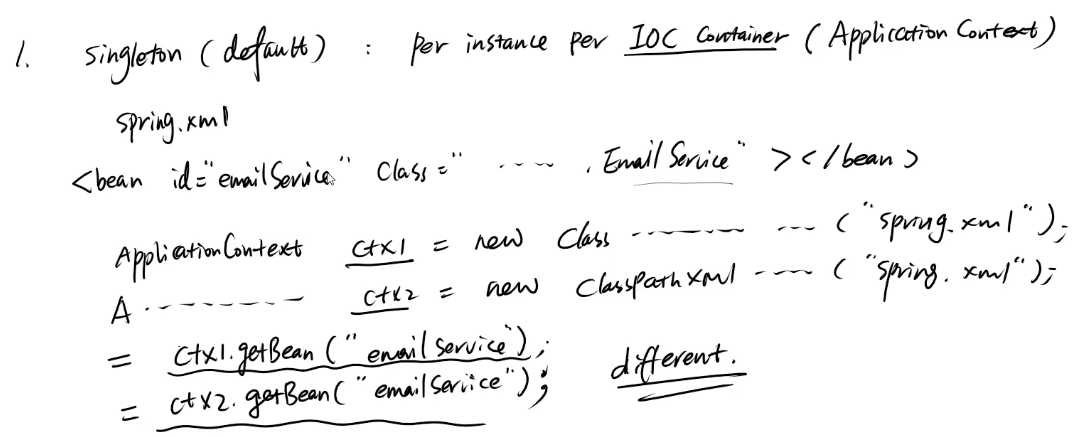 1. Singleton (default) : per instance per IOC Container (Application Context)
spring.xml
<bean id="emailService" Class=" ---- . Email Service" ></bean>
ApplicationContext ctx1 = new Class -------- --- ("spring.xml");
A --------- ctx2 = new ClassPathXml ---- ("spring.xml");
= ctx1.getBean("emailService");
= ctx2.getBean("emailService"); different.